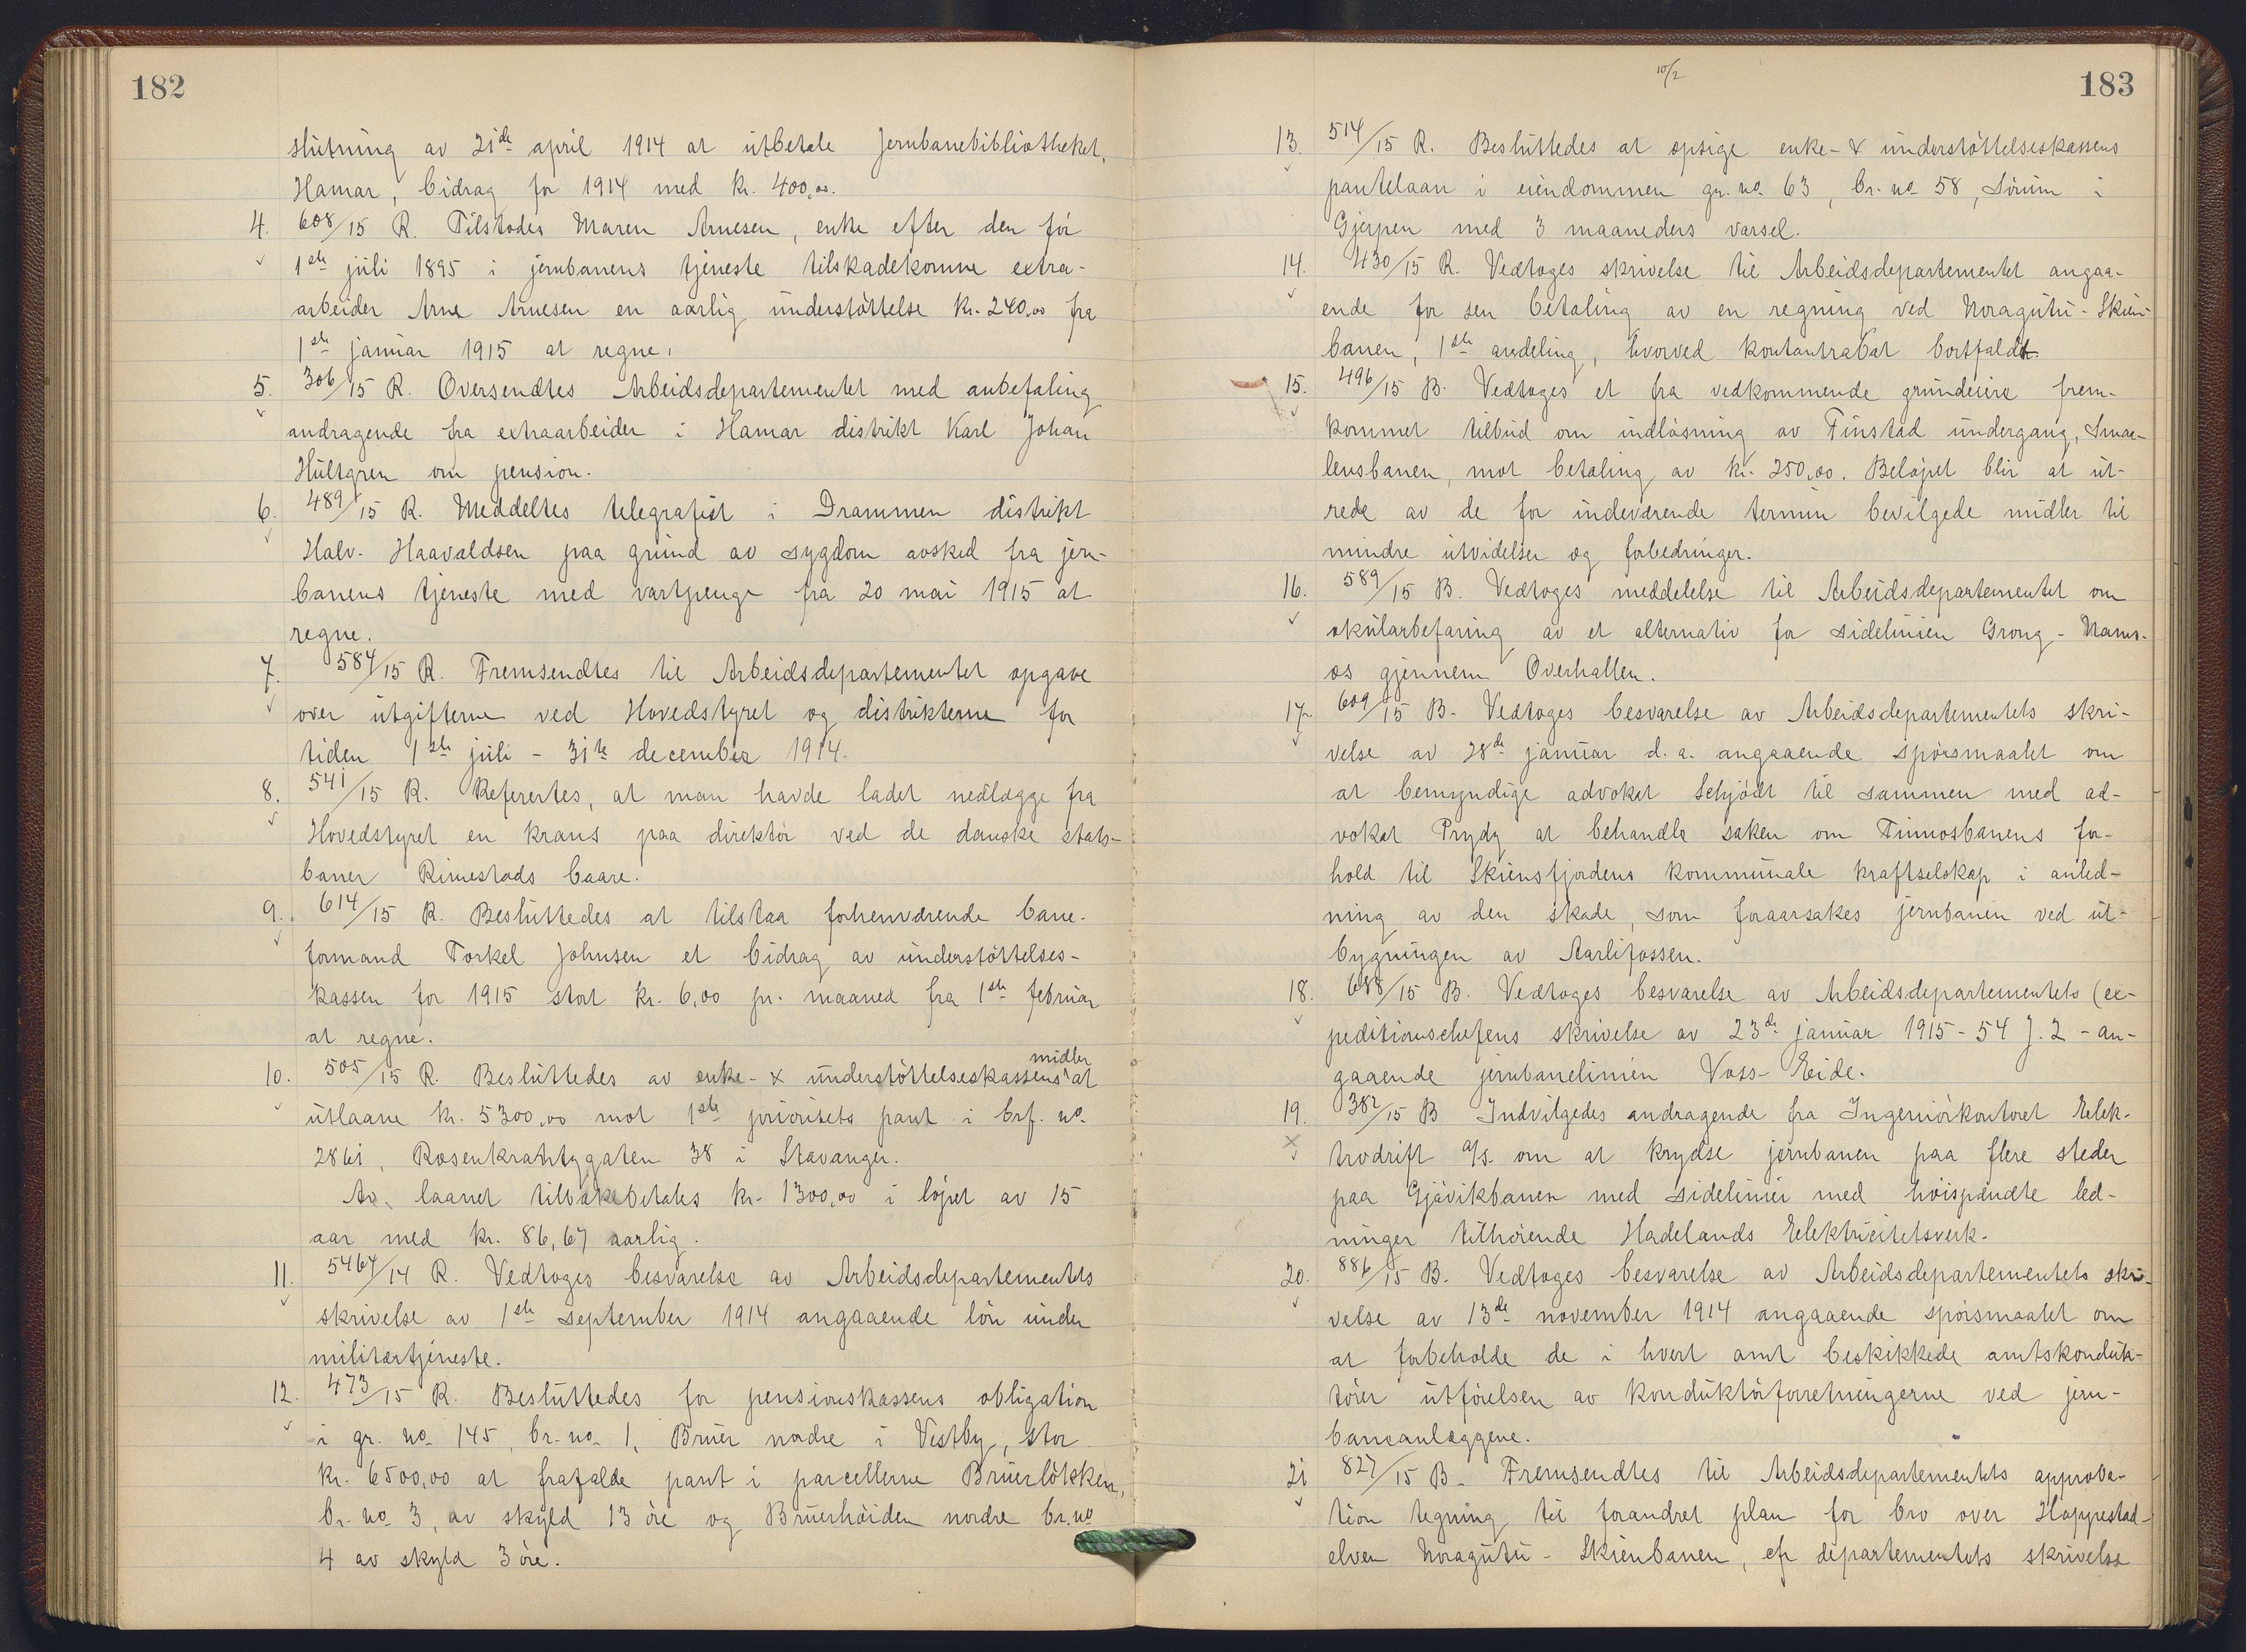 182
slutning av 21de april 1914 at utbetale Jernbanebibliotheket,
Hamar, bidrag for 1914 med kr. 400,00.
4. 608/15 R. Tilstodes Maren Arnesen, enke efter den før
1ste juli 1895 i jernbanens tjeneste tilskadekomne extra-
arbeider Arne Arnesen en aarlig understøttelse kr. 240,00 fra
1ste januar 1915 at regne.
5. 306/15 R. Oversendtes Arbeidsdepartementet med anbefaling
andragende fra extraarbeider i Hamar distrikt Karl Johan
Hultgren om pension.
6. 489/15 R. Meddeltes telegrafist i Drammen distrikt
Halv. Haavaldsen paa grund av sygdom avsked fra jern-
banens tjeneste med vartpenge fra 20 mai 1915 at
regne.
7. 584/15 R. Fremsendtes til Arbeidsdepartementet opgave
over utgifterne ved Hovedstyret og distrikterne for
tiden 1ste juli - 31te december 1914.
8. 541/15 R. Referertes, at man havde ladet nedlægge fra
Hovedstyret en krans paa direktør ved de danske stats-
baner Rimestads baare.
9. 614/15 R. Besluttedes at tilstaa forhenværende bane-
formand Torkel Johnsen et bidrag av understøttelses-
kassen for 1915 stort kr. 6,00 pr. maaned fra 1ste februar
at regne.
10. 505/15 R. Besluttedes av enke- & understøttelseskassens midler at
utlaane kr. 5300,00 mot 1ste prioritets pant i brf. no.
2861, Rosenkrantzgaten 38 i Stavanger.
Av laanet tilbakebetales kr. 1300,00 i løpet av 15
aar med kr. 86,67 aarlig.
11. 5464/14 R. Vedtoges besvarelse av Arbeidsdepartementets
skrivelse av 1ste september 1914 angaaende løn under
militærtjeneste.
12. 473/15 R. Besluttedes for pensionskassens obligation
i gr. no. 145, br. no. 1, Bruer nordre i Vestby, stor
kr. 6500,00 at frafalde pant i parcellerne Bruerløkken,
br. no. 3, av skyld 13 øre og Bruerhøiden nordre br. no
4 av skyld 3 øre.
10/2
183
13. 514/15 R. Besluttedes at opsige enke- & understøttelseskassens
pantelaan i eiendommen gr. no. 63, br. no 58, Sørum i
Gjerpen med 3 maaneders varsel.
14. 430/15 R. Vedtoges skrivelse til Arbeidsdepartementet angaa-
ende for sen betaling av en regning ved Noragutu-Skien-
banen, 1ste avdeling, hvorved kontantrabat bortfaldt.
15. 496/15 B. Vedtoges et fra vedkommende grundeiere frem-
kommet tilbud om indløsning av Finstad undergang, Smaa-
lensbanen, mot betaling av kr. 250,00. Beløpet blir at ut-
rede av de for indeværende termin bevilgede midler til
mindre utvidelser og forbedringer.
16. 589/15 B. Vedtoges meddelelse til Arbeidsdepartementet om
okularbefaring av et alternativ for sidelinien Grong-Nams-
os gjennem Overhallen.
17. 609/15 B. Vedtoges besvarelse av Arbeidsdepartementets skri-
velse av 28de januar d. a. angaaende spørsmaalet om
at bemyndige advokat Schjødt til sammen med ad-
vokat Prydz at behandle saken om Tinnosbanens for-
hold til Skiensfjordens kommunale kraftselskap i anled-
ning av den skade, som foraarsakes jernbanen ved ut-
bygningen av Aarlifossen.
18. 688/15 B. Vedtoges besvarelse av Arbeidsdepartementets (ex-
peditionschefens skrivelse av 23de januar 1915 - 54 J. 2 - an-
gaaende jernbanelinien Voss-Eide.
19. 382/15 B Indvilgedes andragende fra Ingeniørkontoret Elek-
trodrift a/s. om at krydse jernbanen paa flere steder
paa Gjøvikbanen med sidelinier med høispændte led-
ninger tilhørende Hadelands Elektricitetsverk.
20. 886/15 B. Vedtoges besvarelse av Arbeidsdepartementets skri-
velse av 13de november 1914 angaaende spørsmaalet om
at forbeholde de i hvert amt beskikkede amtskonduk-
tører utførelsen av konduktørforretningerne ved jern-
baneanlæggene.
21 827/15 B. Fremsendtes til Arbeidsdepartementets approba-
tion tegning til forandret plan for bro over Hoppestad-
elven Noragutu-Skienbanen, cfr departementets skrivelse